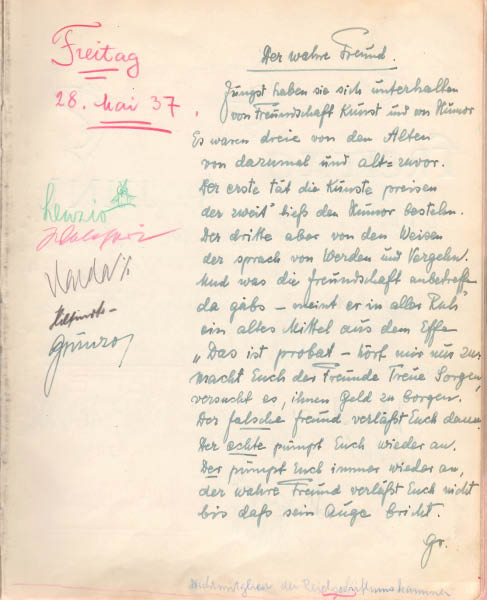 Freitag
28. Mai 37.
Der wahre Freund.
Jüngst haben sie sich unterhalten
von Freundschaft Kunst und von Humor
Es waren dreie von den Alten
von dazumal und alt=zuvor.
Der erste tät die Künste preisen
der zweit' ließ den Humor bestehn.
Der dritte aber von den Weisen
der sprach von Werden und Vergehn.
Und was die Freundschaft anbetreffe
da gäbs – meint er in aller Ruh'
ein altes Mittel aus dem Effe
„Das ist probat – hört mir nur zu:
macht Euch der Freunde Treue Sorgen,
versucht es, ihnen Geld zu borgen.
Der falsche Freund verläßt Euch dann.
Der echte pumpt Euch wieder an.
Der pumpt Euch immer wieder an,
der wahre Freund verläßt Euch nicht
bis daß sein Auge bricht.
Gr.
Lenzio
Grünzo
der Reichs